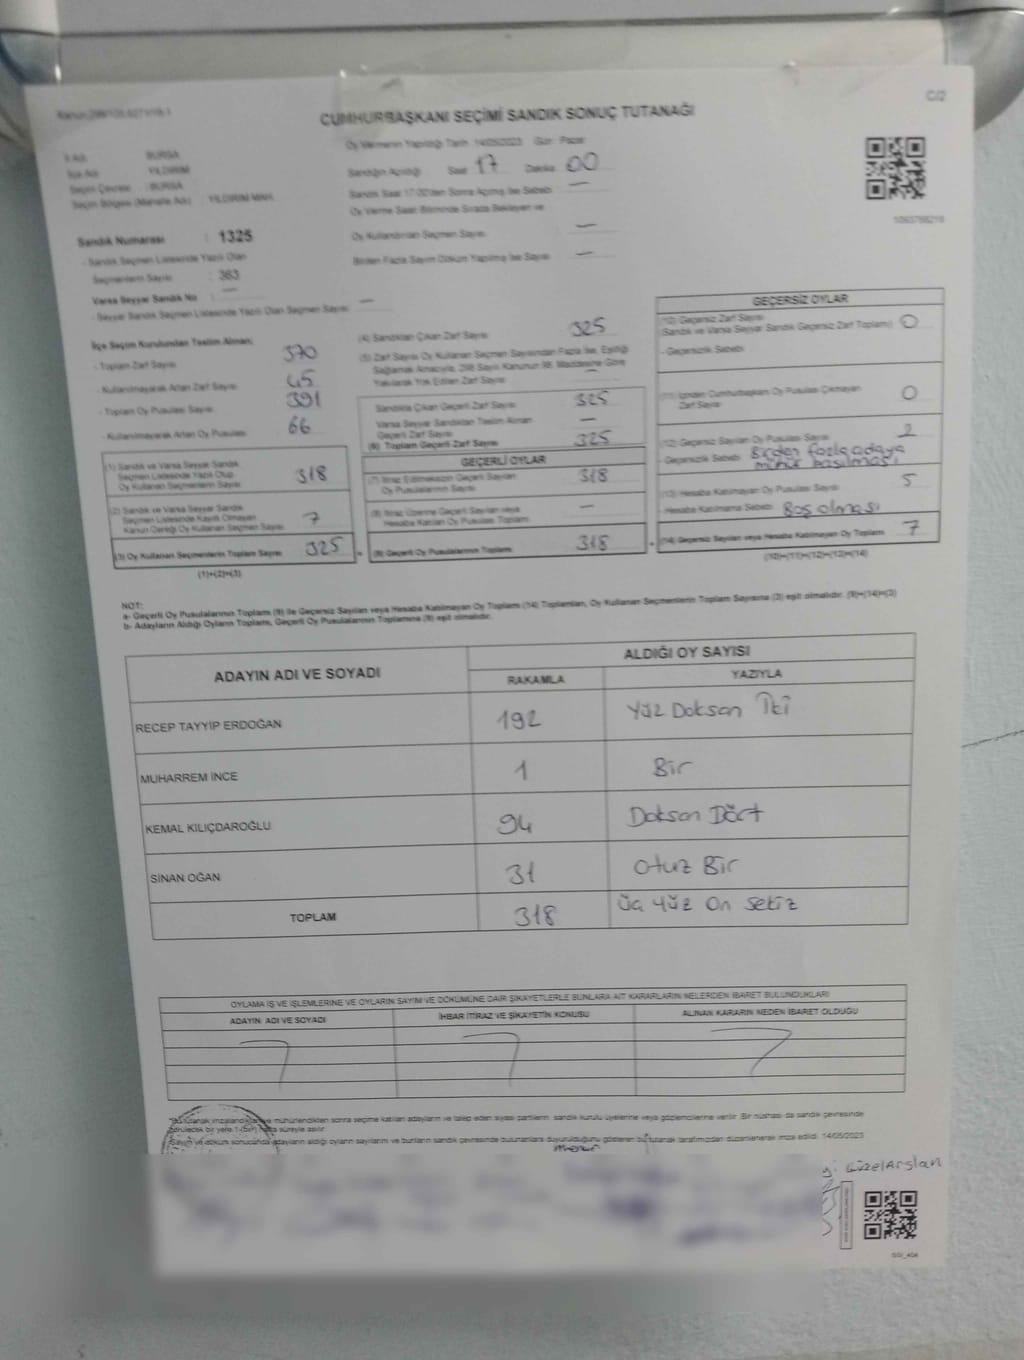 C/2
CUMHURBAŞKANI SEÇİMİ SANDIK SONUÇ TUTANAĞI
Oy Vermenin Yapıldığı Tarih: 14/05/2023 Gün: Pazar
İl Adı : BURSA
İlçe Adı : YILDIRIM
Seçim Çevresi : BURSA
Seçim Bölgesi (Mahalle Adı) : YILDIRIM MAH.
Sandığın Açıldığı Saat 17 Dakika 00
Sandık Saat 17:00'den Sonra Açılmış İse Sebebi: —
Oy Verme Saati Bitiminde Sırada Bekleyen ve
Oy Kullandırılan Seçmen Sayısı —
Birden Fazla Sayım Döküm Yapılmış İse Sayısı: —
Sandık Numarası : 1325
- Sandık Seçmen Listesinde Yazılı Olan
Seçmenlerin Sayısı : 363
Varsa Seyyar Sandık No : —
- Seyyar Sandık Seçmen Listesinde Yazılı Olan Seçmen Sayısı: —
İlçe Seçim Kurulundan Teslim Alınan;
- Toplam Zarf Sayısı 370
- Kullanılmayarak Artan Zarf Sayısı 45
- Toplam Oy Pusulası Sayısı 391
- Kullanılmayarak Artan Oy Pusulası 66
(1) Sandık ve Varsa Seyyar Sandık
Seçmen Listesinde Yazılı Olup
Oy Kullanan Seçmenlerin Sayısı 318
(2) Sandık ve Varsa Seyyar Sandık
Seçmen Listesinde Kayıtlı Olmayan
Kanun Gereği Oy Kullanan Seçmen Sayısı 7
(3) Oy Kullanan Seçmenlerin Toplam Sayısı 325
(1)+(2)=(3)
(4) Sandıktan Çıkan Zarf Sayısı 325
(5) Zarf Sayısı Oy Kullanan Seçmen Sayısından Fazla İse, Eşitliği
Sağlamak Amacıyla, 298 Sayılı Kanunun 98. Maddesine Göre
Yakılarak Yok Edilen Zarf Sayısı —
Sandıkta Çıkan Geçerli Zarf Sayısı 325
Varsa Seyyar Sandıktan Teslim Alınan
Geçerli Zarf Sayısı —
(6) Toplam Geçerli Zarf Sayısı 325
GEÇERLİ OYLAR
(7) İtiraz Edilmeksizin Geçerli Sayılan
Oy Pusulalarının Sayısı 318
(8) İtiraz Üzerine Geçerli Sayılan veya
Hesaba Katılan Oy Pusulası Toplamı —
(9) Geçerli Oy Pusulalarının Toplamı 318
GEÇERSİZ OYLAR
(10) Geçersiz Zarf Sayısı
(Sandık ve Varsa Seyyar Sandık Geçersiz Zarf Toplamı) 0
- Geçersizlik Sebebi
(11) İçinden Cumhurbaşkanı Oy Pusulası Çıkmayan
Zarf Sayısı 0
(12) Geçersiz Sayılan Oy Pusulası Sayısı 2
- Geçersizlik Sebebi Birden fazla adaya
mühür basılması
(13) Hesaba Katılmayan Oy Pusulası Sayısı 5
- Hesaba Katılmama Sebebi Boş olması
(14) Geçersiz Sayılan veya Hesaba Katılmayan Oy Toplamı 7
NOT:
a- Geçerli Oy Pusulalarının Toplamı (9) ile Geçersiz Sayılan veya Hesaba Katılmayan Oy Toplamı (14) Toplamları, Oy Kullanan Seçmenlerin Toplam Sayısına (3) eşit olmalıdır. (9)+(14)=(3)
b- Adayların Aldığı Oyların Toplamı, Geçerli Oy Pusulalarının Toplamına (9) eşit olmalıdır.
ADAYIN ADI VE SOYADI
ALDIĞI OY SAYISI
RAKAMLA YAZIYLA
RECEP TAYYİP ERDOĞAN 192 Yüz Doksan İki
MUHARREM İNCE 1 Bir
KEMAL KILIÇDAROĞLU 94 Doksan Dört
SİNAN OĞAN 31 Otuz Bir
TOPLAM 318 Üç Yüz On Sekiz
OYLAMA İŞ VE İŞLEMLERİNE VE OYLARIN SAYIM VE DÖKÜMÜNE DAİR ŞİKAYETLERLE BUNLARA AİT KARARLARIN NELERDEN İBARET BULUNDUKLARI
ADAYIN ADI VE SOYADI İHBAR İTİRAZ VE ŞİKAYETİN KONUSU ALINAN KARARIN NEDEN İBARET OLDUĞU
mühürlendikten sonra seçime katılan adayların ve talep eden siyasi partilerin sandık kurulu üyelerine veya gözlemcilerine verilir. Bir nüshası da sandık çevresinde
süreyle asılır.
Sayım ve döküm sonucunda adayların aldığı oyların sayılarını ve bunların sandık çevresinde bulunanlara duyurulduğunu gösteren bu tutanak tarafımızdan düzenlenerek imza edildi. 14/05/2023
GüzelArslan